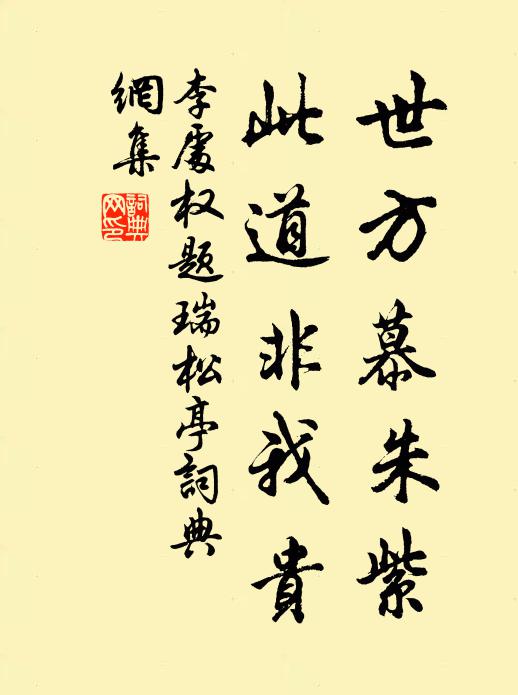 世方慕朱紫
此道非我貴
李處权題瑞松亭詞典
網集
詞典
网印